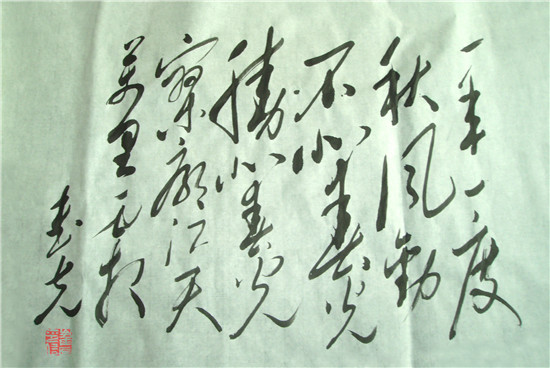 一年一度
秋風勁
不似春光
勝似春光
寥廓江天
萬里霜